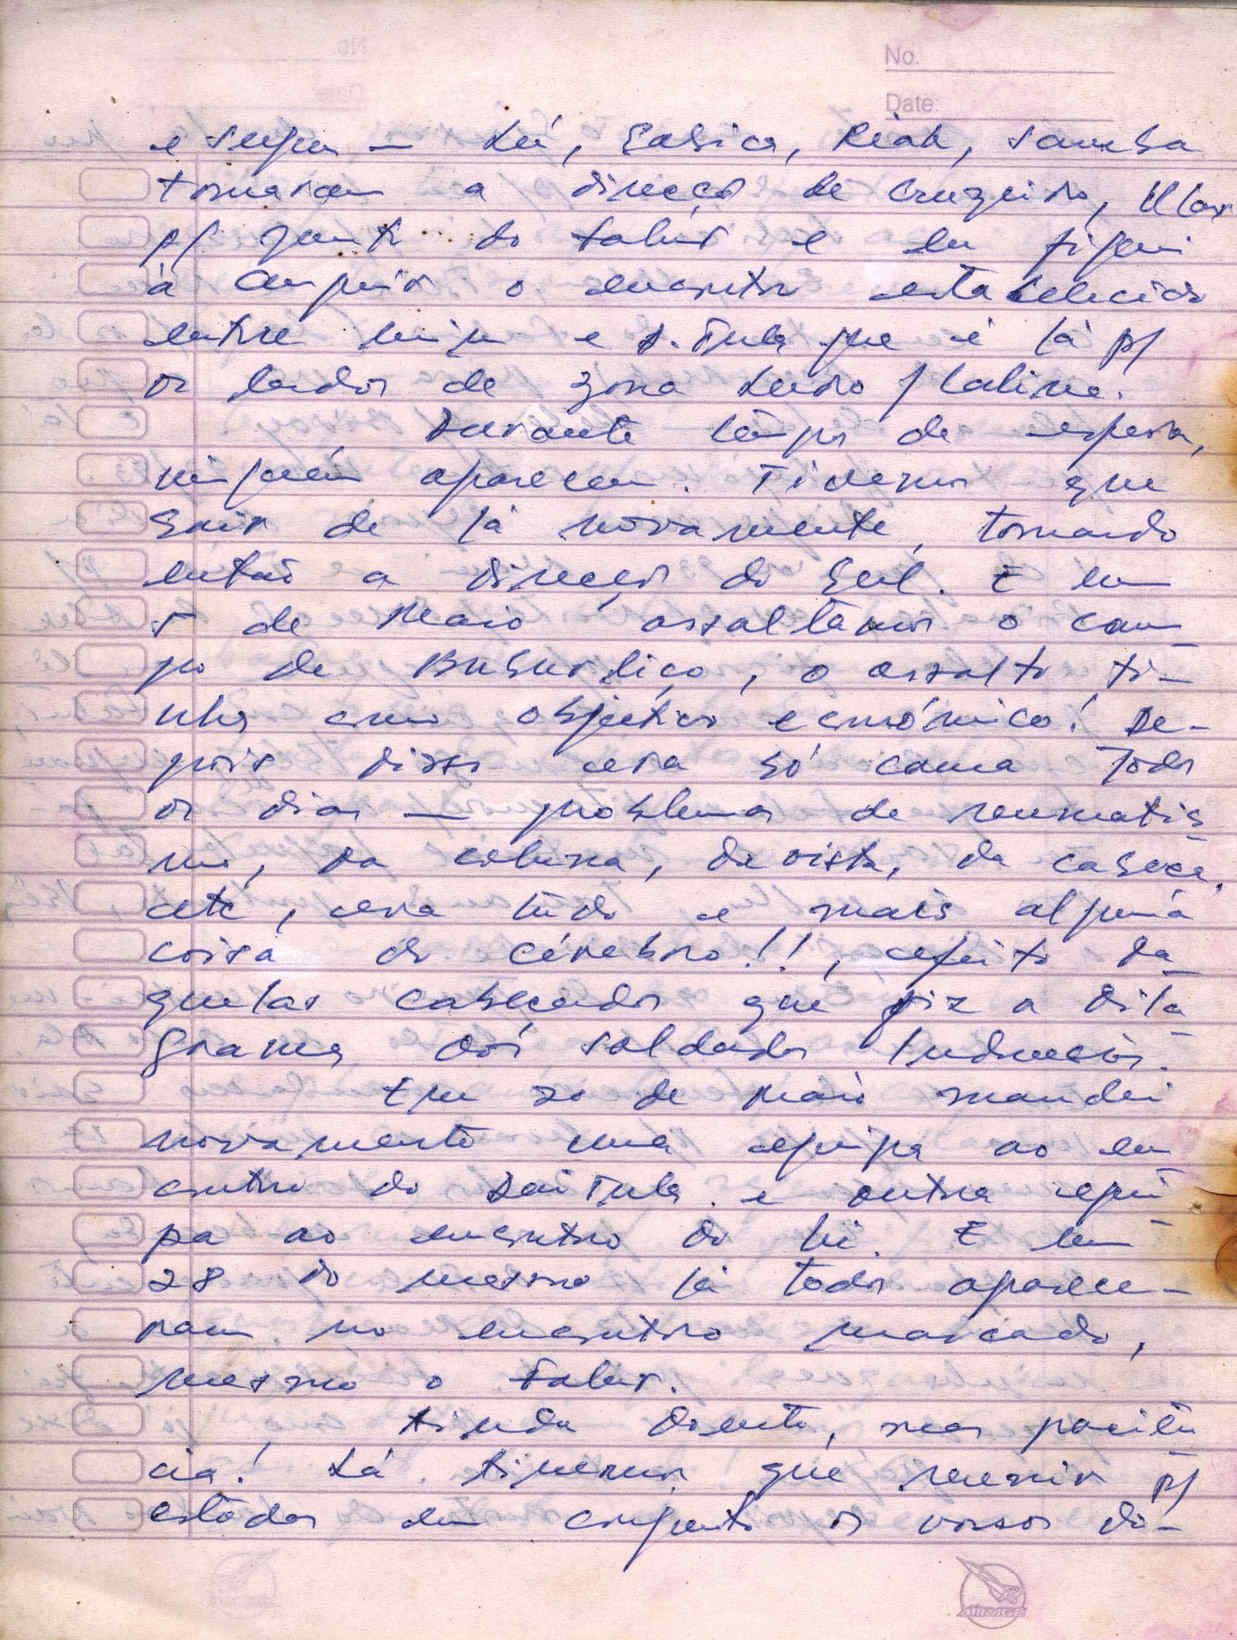 No.
Date:
e segui — Lu, Sabica, Riak, Samba
tomaram a direcção de Cruzeiro, Ular
p/ junto do Falur e eu fiquei
à cumprir o encontro estabelecido
entre mim e D. Tula que é lá p/
os lados de zona Leuro / Caliue.
Durante tempo de espera,
ninguém apareceu. Tivemos que
sair de lá novamente, tomando
então a direcção do Sul. E em
5 de Maio assaltámos o cam-
po de Bubur Liço, o assalto ti-
nha como objectivo económico! De-
pois disso era só cama todos
os dias — problemas de reumatis-
mo, da coluna, da vista, da cabeça,
etc, era tudo e mais alguma
coisa do cérebro!!, efeito da-
quelas cabeçadas que fiz a dila-
grama dos soldados Indonésios.
Em 20 de Maio mandei
novamente uma equipa ao en-
contro do Dai Tula e outra equi-
pa ao encontro do Li. E em
28 do mesmo lá todos aparece-
ram no encontro marcado,
mesmo o Falur.
Ainda doente, mas paciên-
cia! Lá tivemos que reunir p/
estudar em conjunto os vossos do-